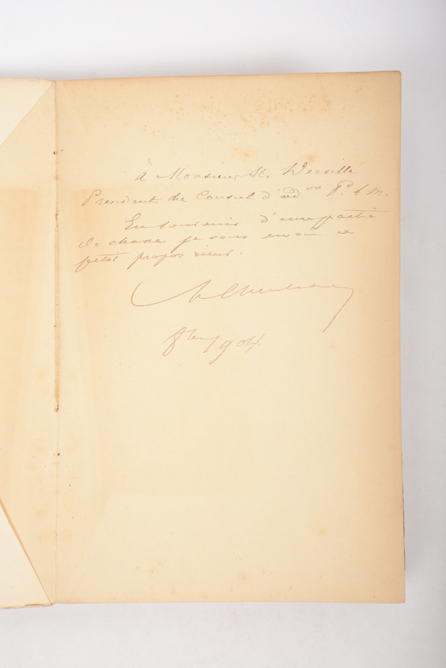 à Monsieur H. Derville
Président du Conseil d'ad^on P. L. M.
En souvenir d'une partie
de chasse je vous envoie ce
petit propos
8bre 1904